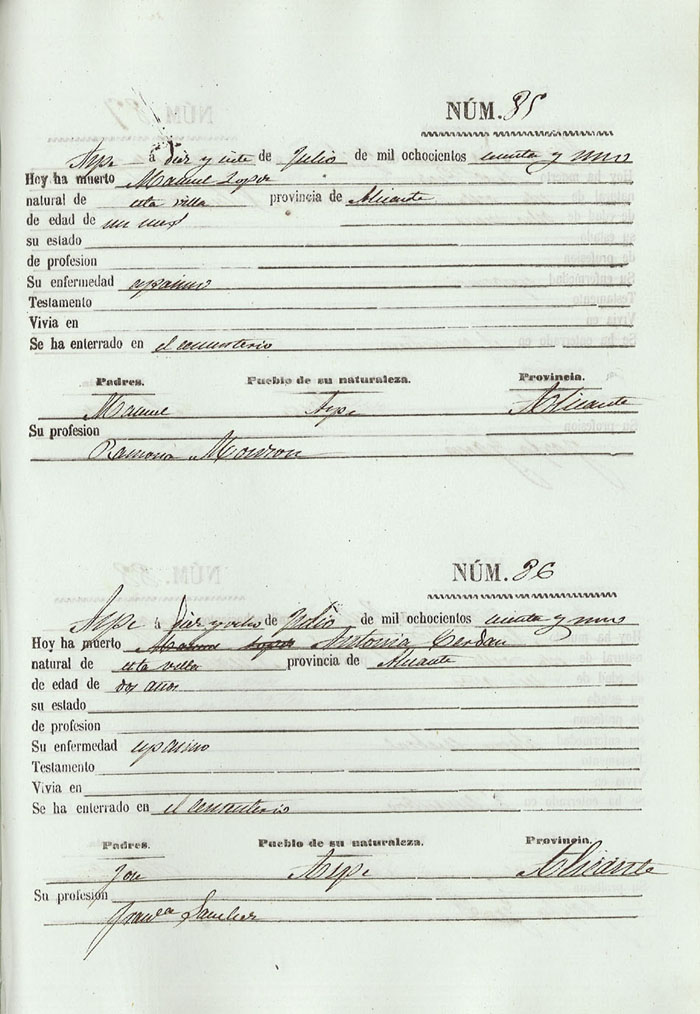 NÚM. 85
Aspe á diez y siete de Julio de mil ochocientos cuenta y uno
Hoy ha muerto Manuel Lopez
natural de esta villa provincia de Alicante
de edad de un mes
su estado
de profesion
Su enfermedad espasmo
Testamento
Vivia en
Se ha enterrado en el cementerio
Padres. Pueblo de su naturaleza. Provincia.
Manuel Aspe Alicante
Su profesion
Ramona
NÚM. 86
Aspe á diez y ocho de Julio de mil ochocientos cuenta y uno
Hoy ha muerto Antonia Cerdan
natural de esta villa provincia de Alicante
de edad de dos años
su estado
de profesion
Su enfermedad espasmo
Testamento
Vivia en
Se ha enterrado en el cementerio
Padres. Pueblo de su naturaleza. Provincia.
José Aspe Alicante
Su profesion
Franca Sanchez